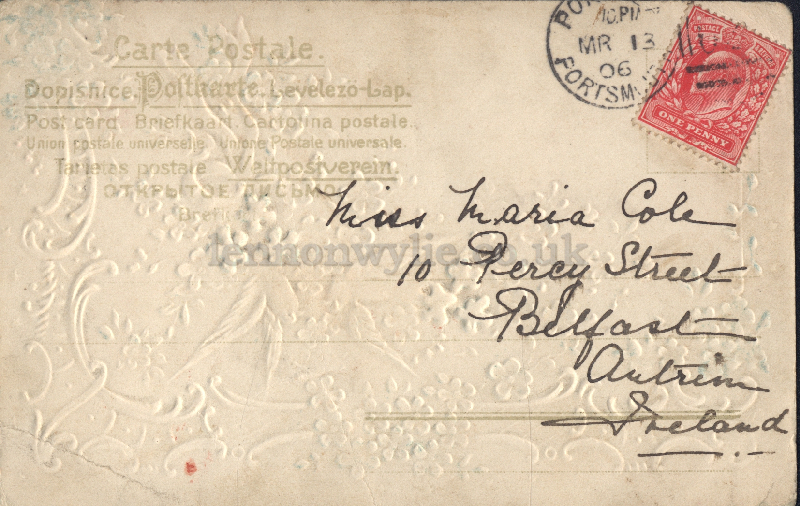 Carte Postale.
Dopisnice. Postkarte. Levelező-Lap.
Post card Briefkaart. Cartolina postale.
Union postale universelle. Unione Postale universale.
Tarjetas postale Weltpostverein.
ОТКРЫТОЕ ПИСЬМО
MR 13
06
PORTSM
ONE PENNY
Miss Maria Cole
10 Percy Street
Belfast
Antrim
Ireland
lennonwylie.co.uk